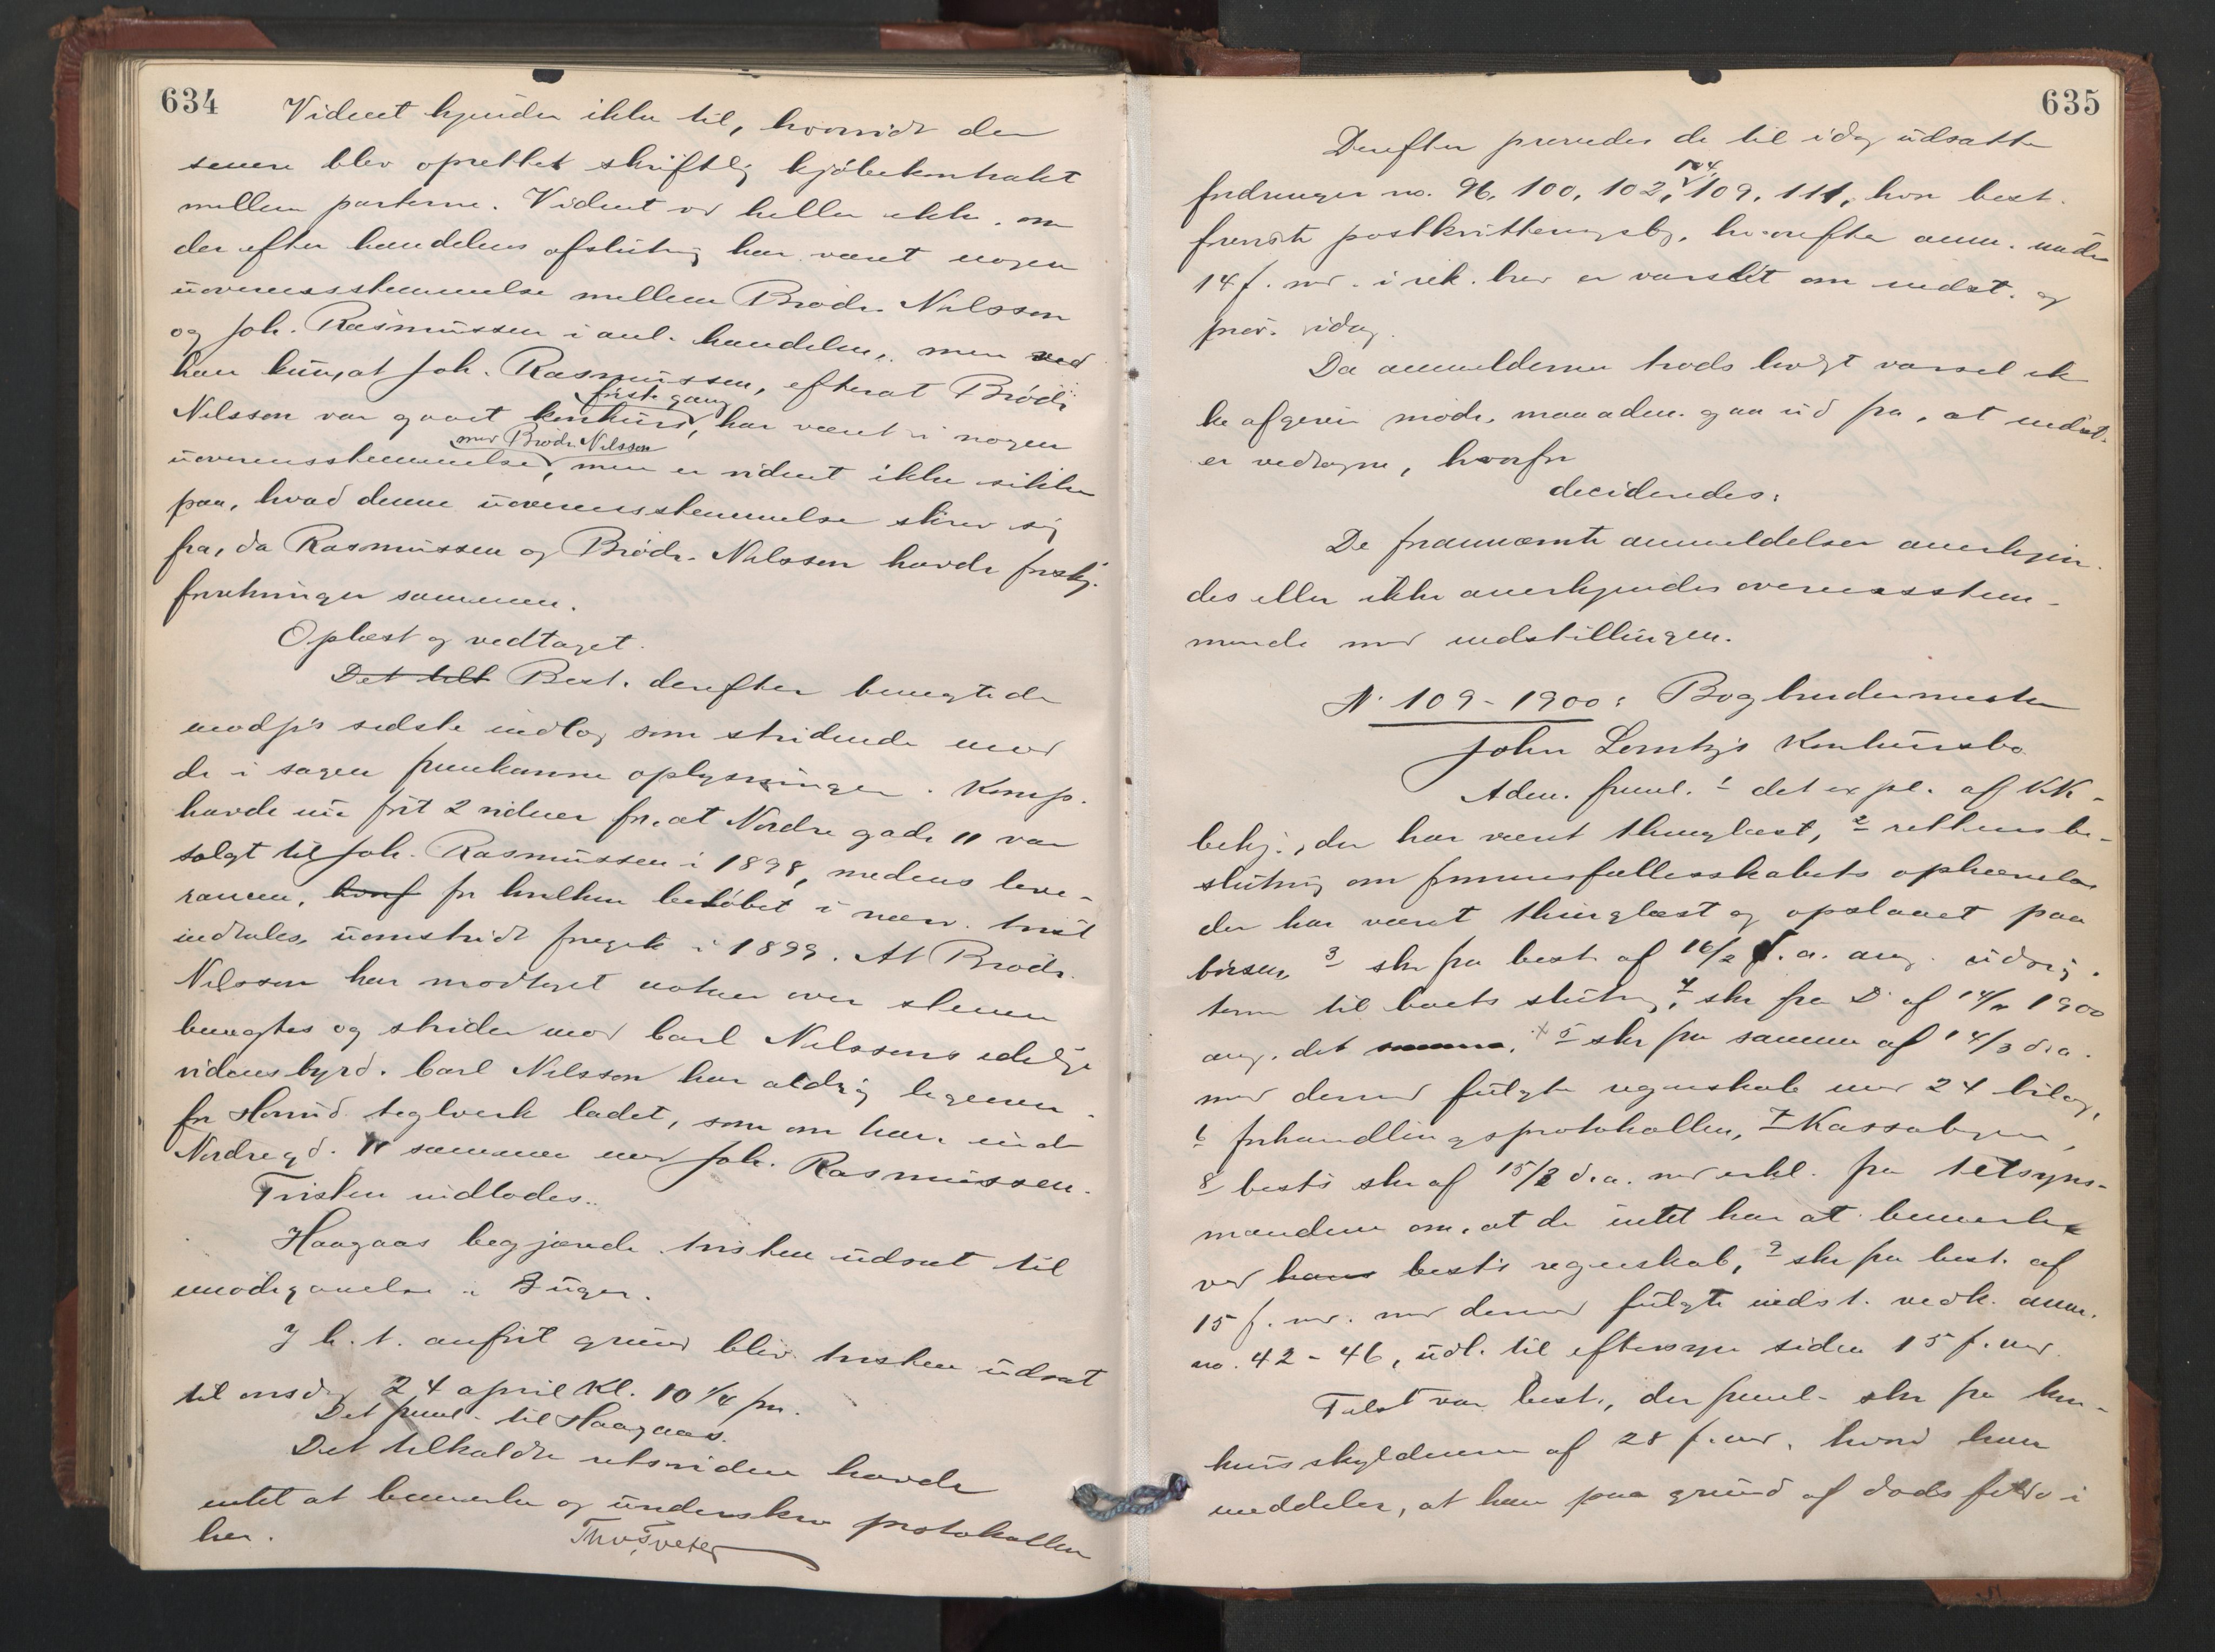 634
Vidnet kjender ikke til, hvorvidt der
senere blev oprettet skriftlig kjøbekontrakt
mellem parterne. Vidnet ved heller ikke, om
der efter handelens afslutnig har været nogen
uoverensstemmelse mellem Brødr. Nilsson
og Joh. Rasmussen i anl. handelen, men ved
han kun, at Joh. Rasmussen, efterat Brødr
første gang
Nilsson var gaaet konkurs, har været i nogen
med Brødr. Nilsson
uoverensstemmelse, men er vidnet ikke sikker
paa, hvad denne uoverensstemmelse skrev sig
fra, da Rasmussen og Brødr. Nilsson havde forskj.
forretninger sammen.
Oplæst og vedtaget.
Det till Best. derefter benegtede
modp's sidste indlæg som stridende mod
de i sagen fremkomne oplysninger. Komp.
havde nu ført 2 vidner for, at Nordre gade 11 var
solgt til Joh. Rasmussen i 1898, medens leve-
rancen, for hvilken beløbet i nærv. tvist
indtales, uomstridt foregik i 1899. At Brødr.
Nilsson har modtaget notaer over stenen
benegtes og strider mod Carl Nilssens edelige
vidnesbyrd. Carl Nilsson har aldrig ligeoverfor
for teglverk ladet, som om han eiede
Nordregd. 11 sammen med Joh. Rasmussen.
Tvisten indlodes.
Haagaas begjærede tvisten udsat til
imødegaaelse i 3 uger.
I h. t. anført grund blev tvisten udsat
til onsdag 24 april Kl. 10 1/4 fm.
Det freml. til Haagaas.
Det tilkaldte retsvidne havde
intet at bemerke og underskrev protokollen
her.
635
Derefter prøvedes de til idag udsatte
104,
fordringer no. 96, 100, 102, 109, 111, hvor best.
foreviste postkvitteringsbg, hvorefter anm. under
14 f. md. i rek. brev er varslet om indst. og
prøv. idag.
Da anmelderne trods lovligt varsel ik-
ke afgiver møde, maa aden. gaa ud fra, at indst.
er vedtagne, hvorfor
decideredes:
De frannævnte anmeldelser anerkjen-
des eller ikke anerkjendes overensstem-
mende med indstillingen.
N. 109 - 1900: Bogbindermester
John Lorntzjs Konkursbo
Adm. freml. 1 det expl. af KK-
bekj., der har været thinglæst, 2 rettens be-
slutnig om formuesfællesskabets ophævelse
der har været thinglæst og opslaaet paa
børsen, 3 skr fra best. af 16/2 d. a. ang. udsig-
terne til boets slutnig, 4 skr fra D af 14/ 1900
ang. det samme, 5 skr fra samme af 14/3 d. a.
med derved fulgte regnskab med 24 bilag,
6 forhandlingsprotokollen, 7 Kassabogen,
8 best's skr af 15/3 d. a. med erkl. fra tilsyns-
mændene om, at de intet har at bemerke
ved hans best's regnskab, 9 skr fra best. af
15 f. md. med derved fulgte indst. vedk. anm.
no. 42 - 46, udl. til eftersyn siden 15 f. md.
Tilst var best., der freml. skr fra kon-
kursskyldneren af 28 f. md., hvori han
meddeler, at han paa grund af dødsfald i